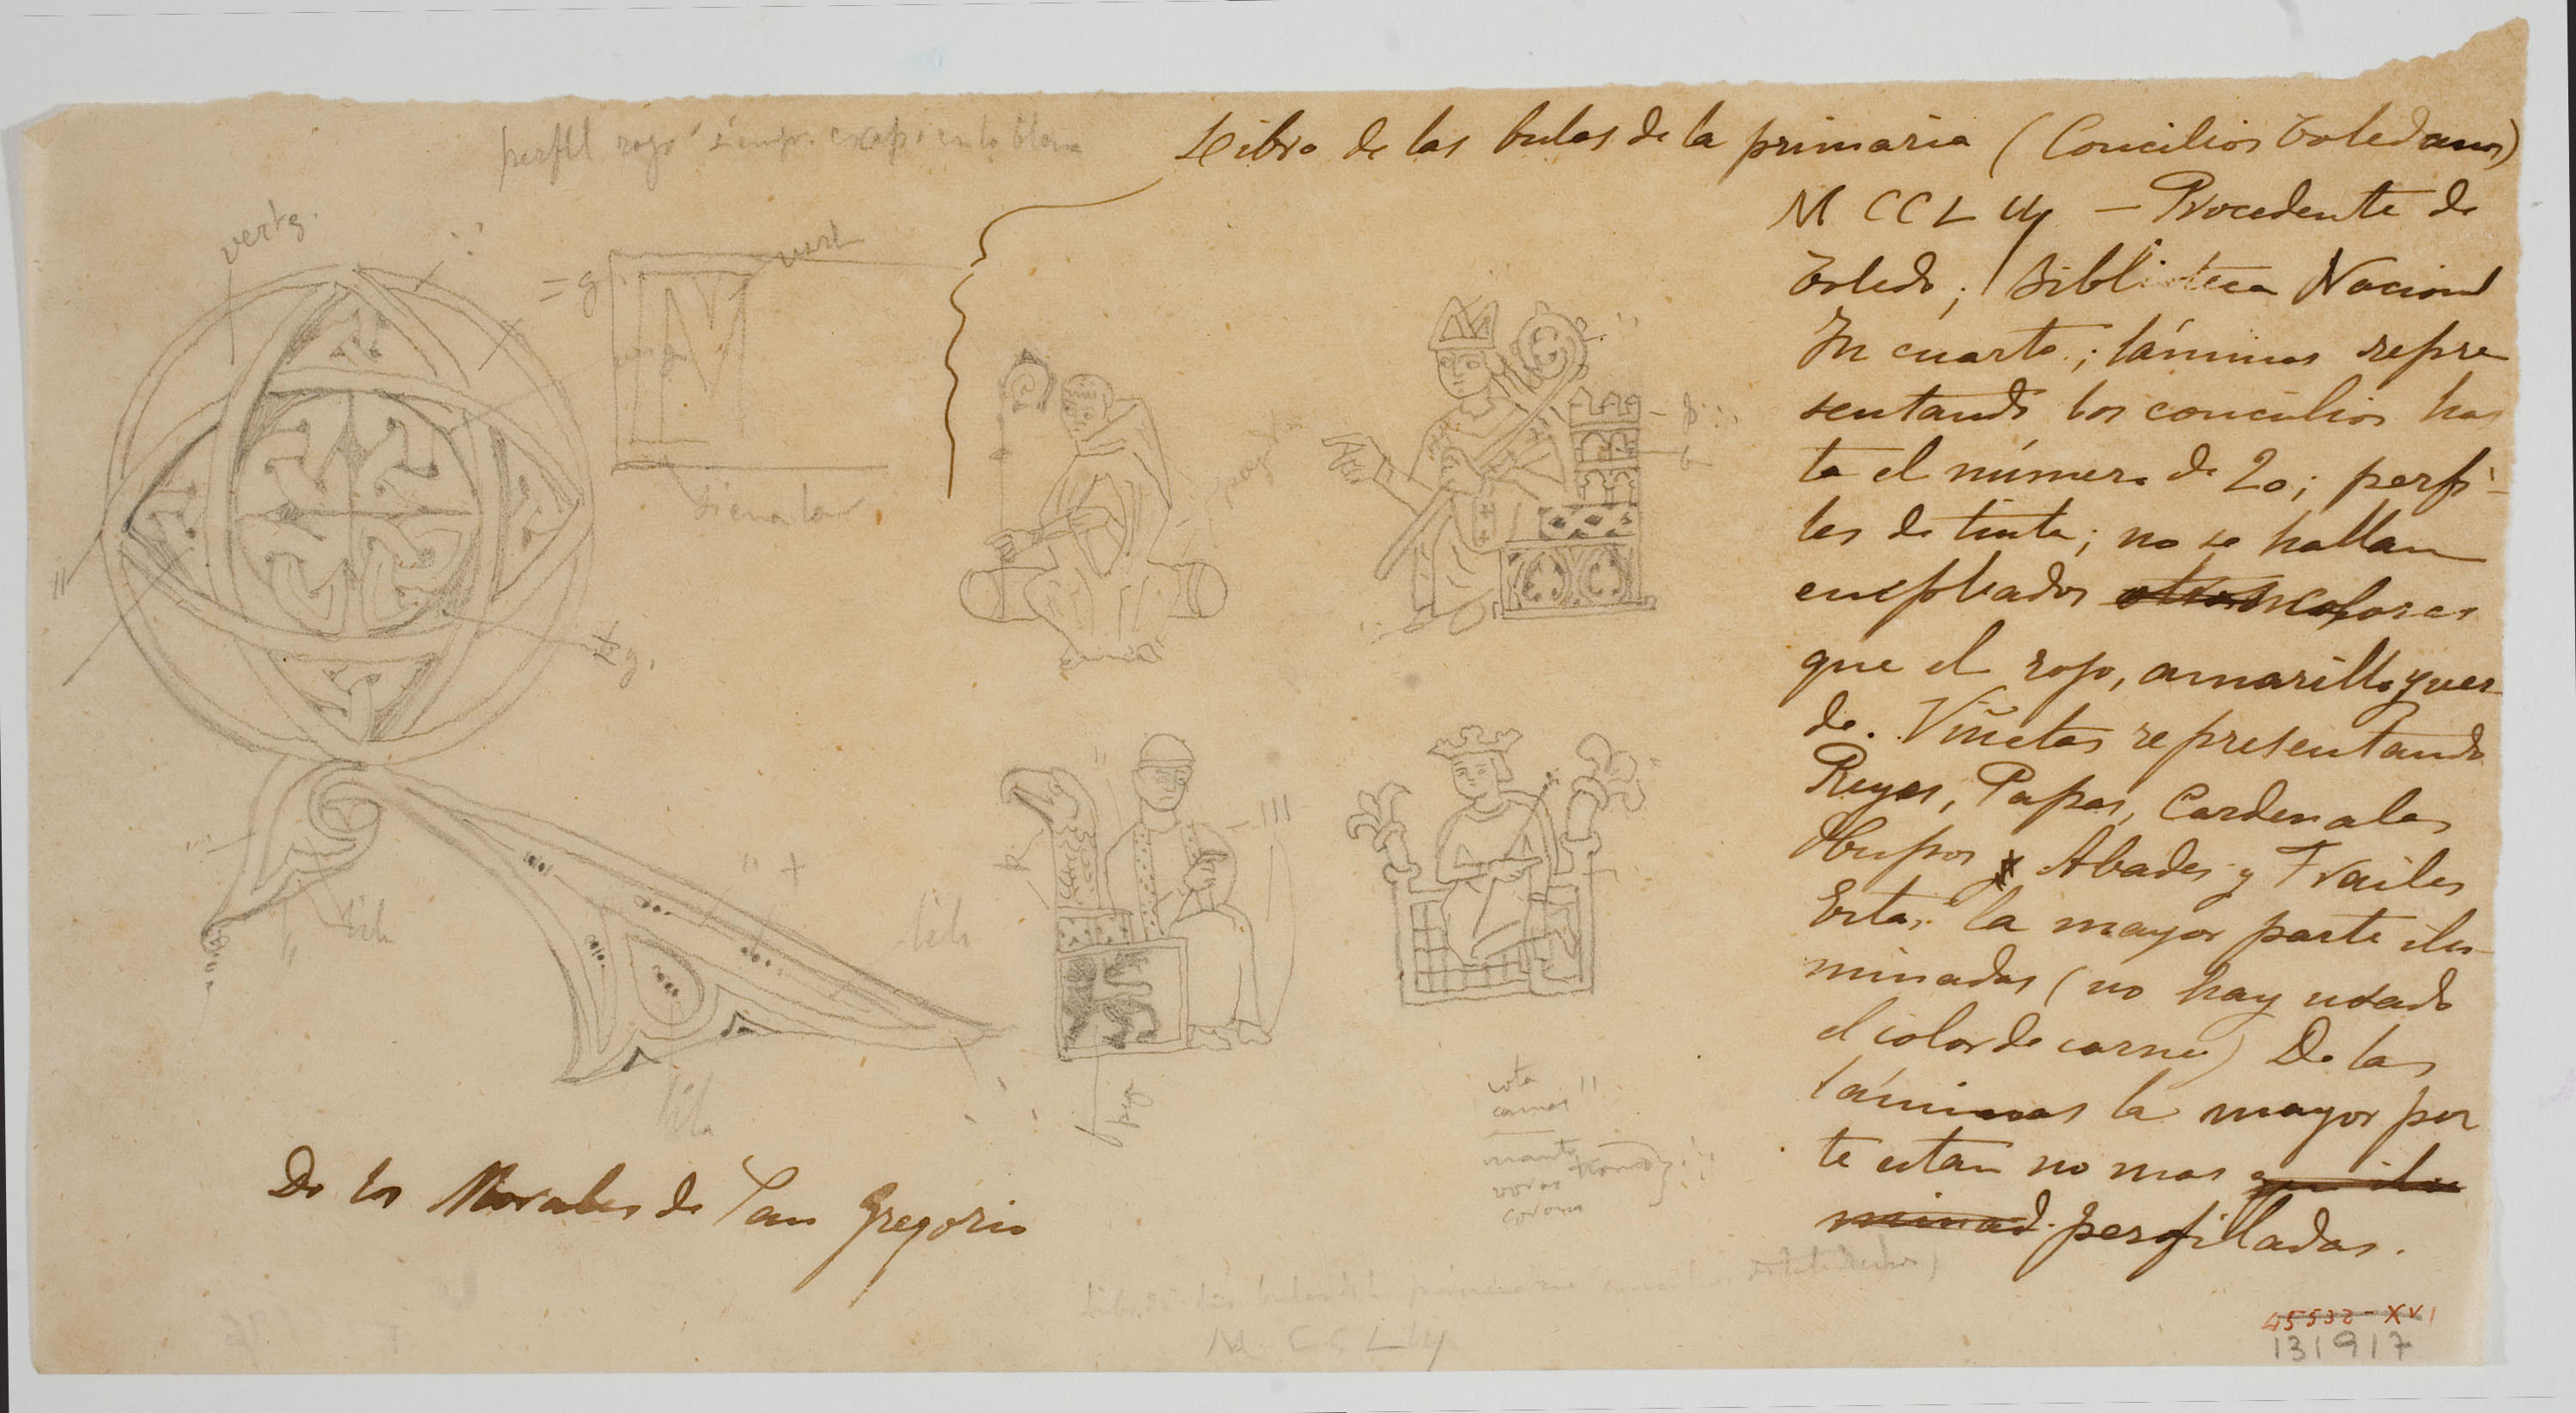 perfil rojo siempr. excep. en lo blan
Libro de las bulas de la primaria (Concilios Toledanos)
M CCL III — Procedente de
Toledo; Biblioteca Nacional
In cuarto; láminas repre
sentando los concilios has
ta el número de 20; perfi-
les de tinta; no se hallan
empleados otros colores
que el rojo, amarillo y ver
de. Viñetas representando
Reyes, Papas, Cardenales
Obispos Abades y Frailes
Estas la mayor parte ilu-
minadas (no hay usado
el color de carne) De las
láminas la mayor par
te estan no mas que ilu
minad. perfilladas.
verts.
vert
= g
M
g.
lila
lila
lila
" +
"
III
R
cota
camas "
manto
corona
De los Morales de San Gregorio
Libro de las bulas de la
M. CCL III
45532-XVI
131917